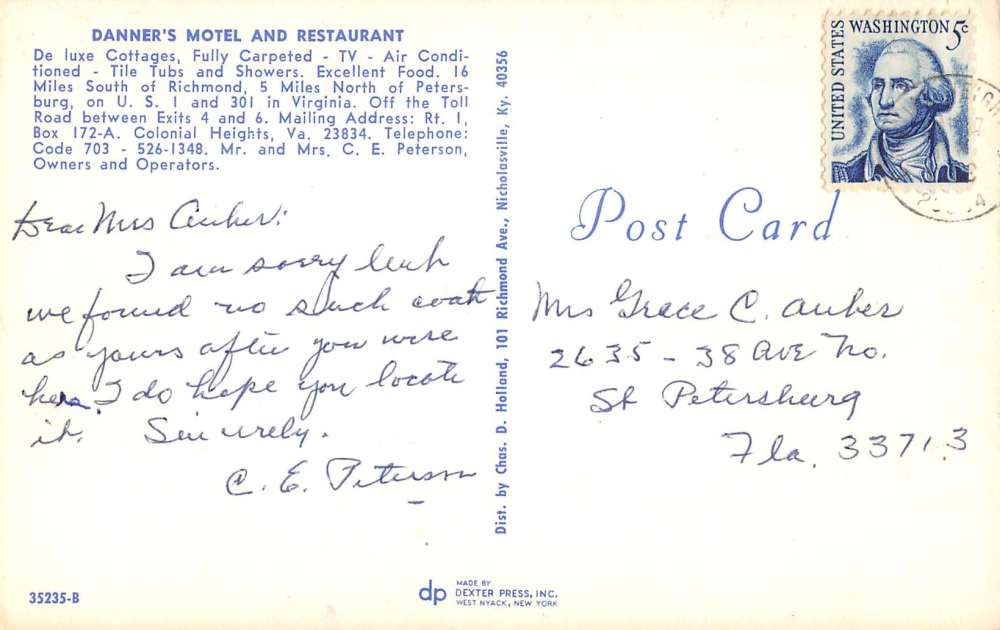 DANNER'S MOTEL AND RESTAURANT
De luxe Cottages, Fully Carpeted - TV - Air Condi-
tioned - Tile Tubs and Showers. Excellent Food. 16
Miles South of Richmond, 5 Miles North of Peters-
burg, on U. S. 1 and 301 in Virginia. Off the Toll
Road between Exits 4 and 6. Mailing Address: Rt. 1,
Box 172-A. Colonial Heights, Va. 23834. Telephone:
Code 703 - 526-1348. Mr. and Mrs. C. E. Peterson,
Owners and Operators.
Dear Mrs Auber:
I am sorry but
we found no such coat
as yours after you were
here. I do hope you locate
it. Sincerely.
C. E. Peterson
35235-B
Dist. by Chas. D. Holland, 101 Richmond Ave., Nicholasville, Ky. 40356
dp
MADE BY
DEXTER PRESS, INC.
WEST NYACK, NEW YORK
UNITED STATES
WASHINGTON 5c
Post Card
Mrs Grace C. Auber
2635 - 38 Ave No.
St Petersburg
Fla. 33713